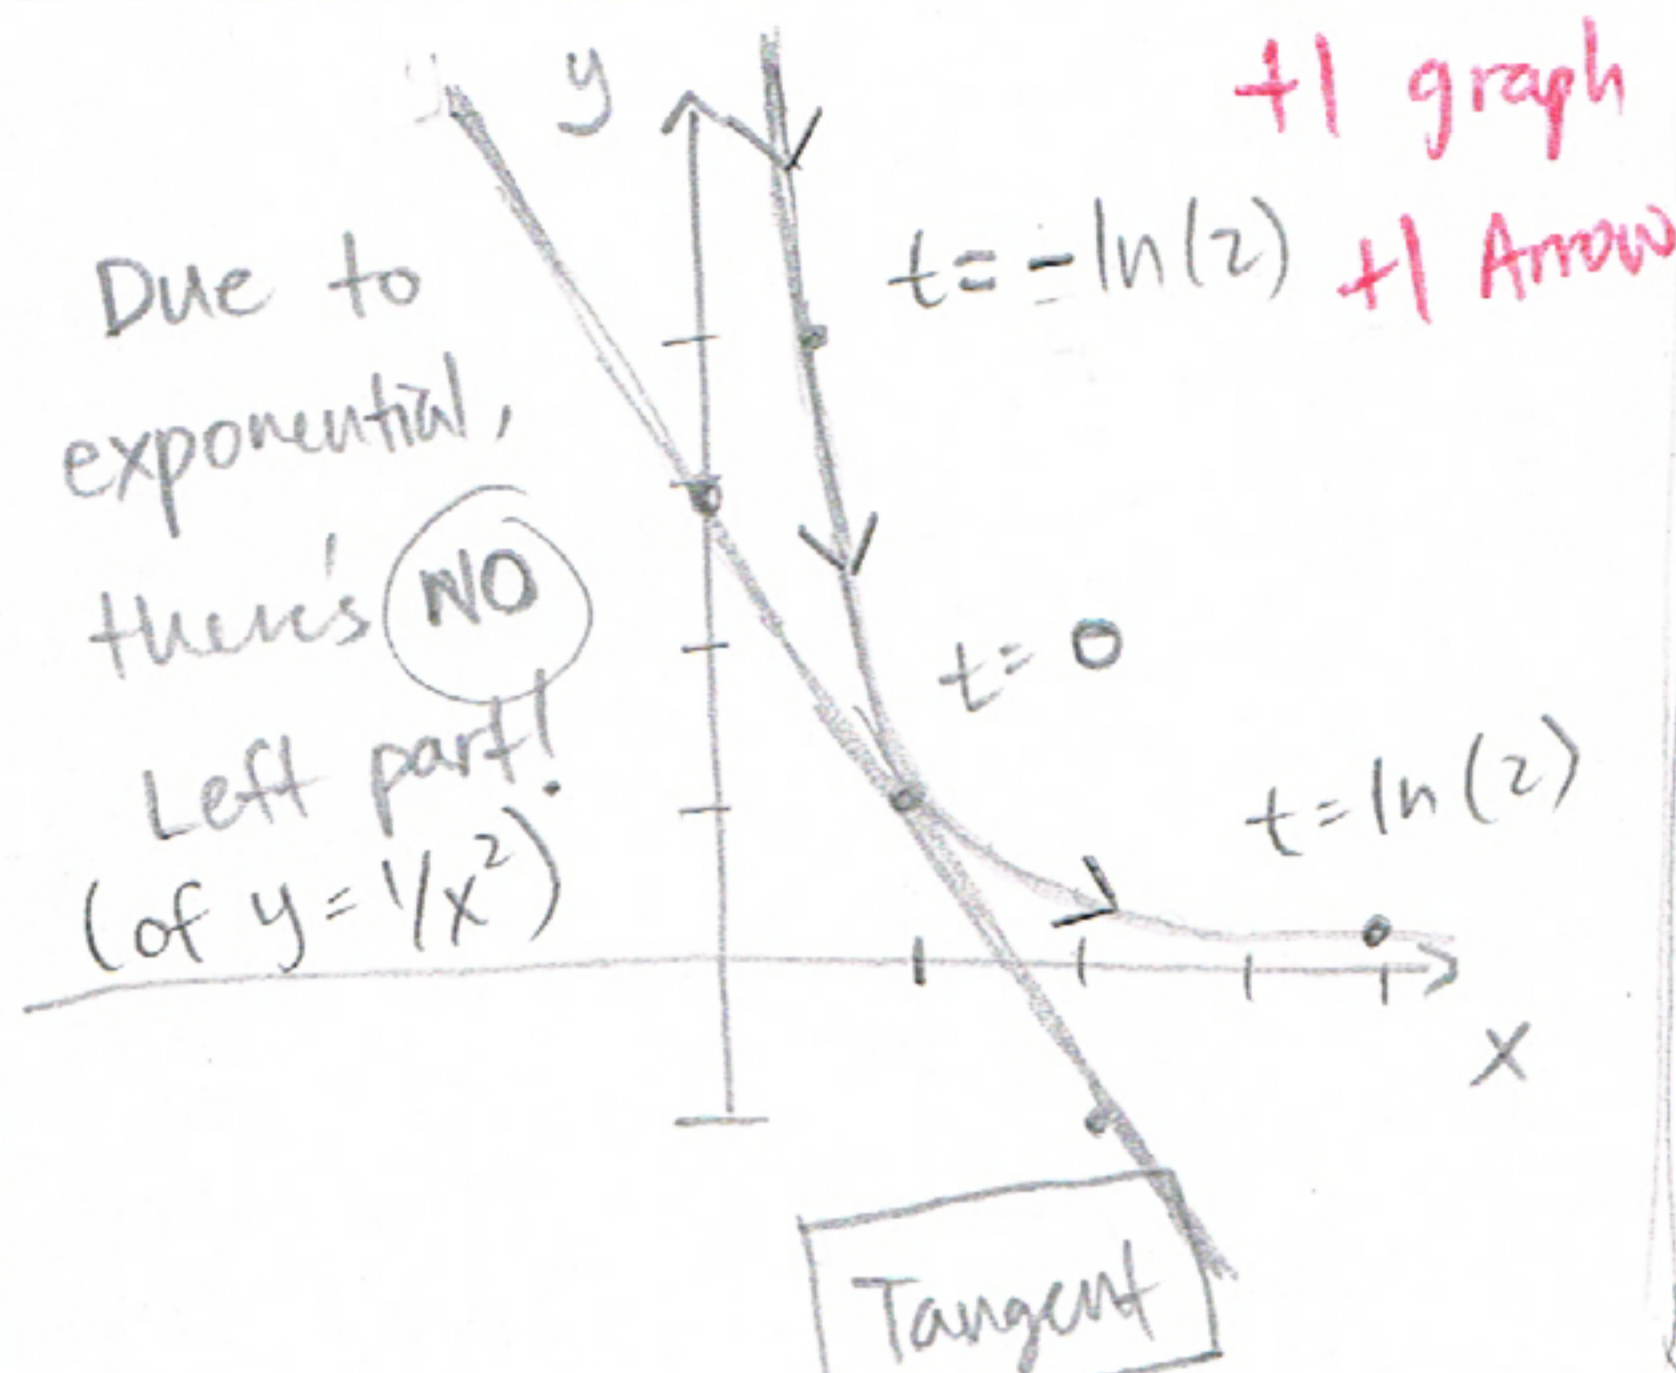 y
+1 graph
t = -ln(2)
+1 Arrow
Due to
exponential,
there's NO
Left part!
(of y = 1/x²)
t = 0
t = ln(2)
x
Tangent